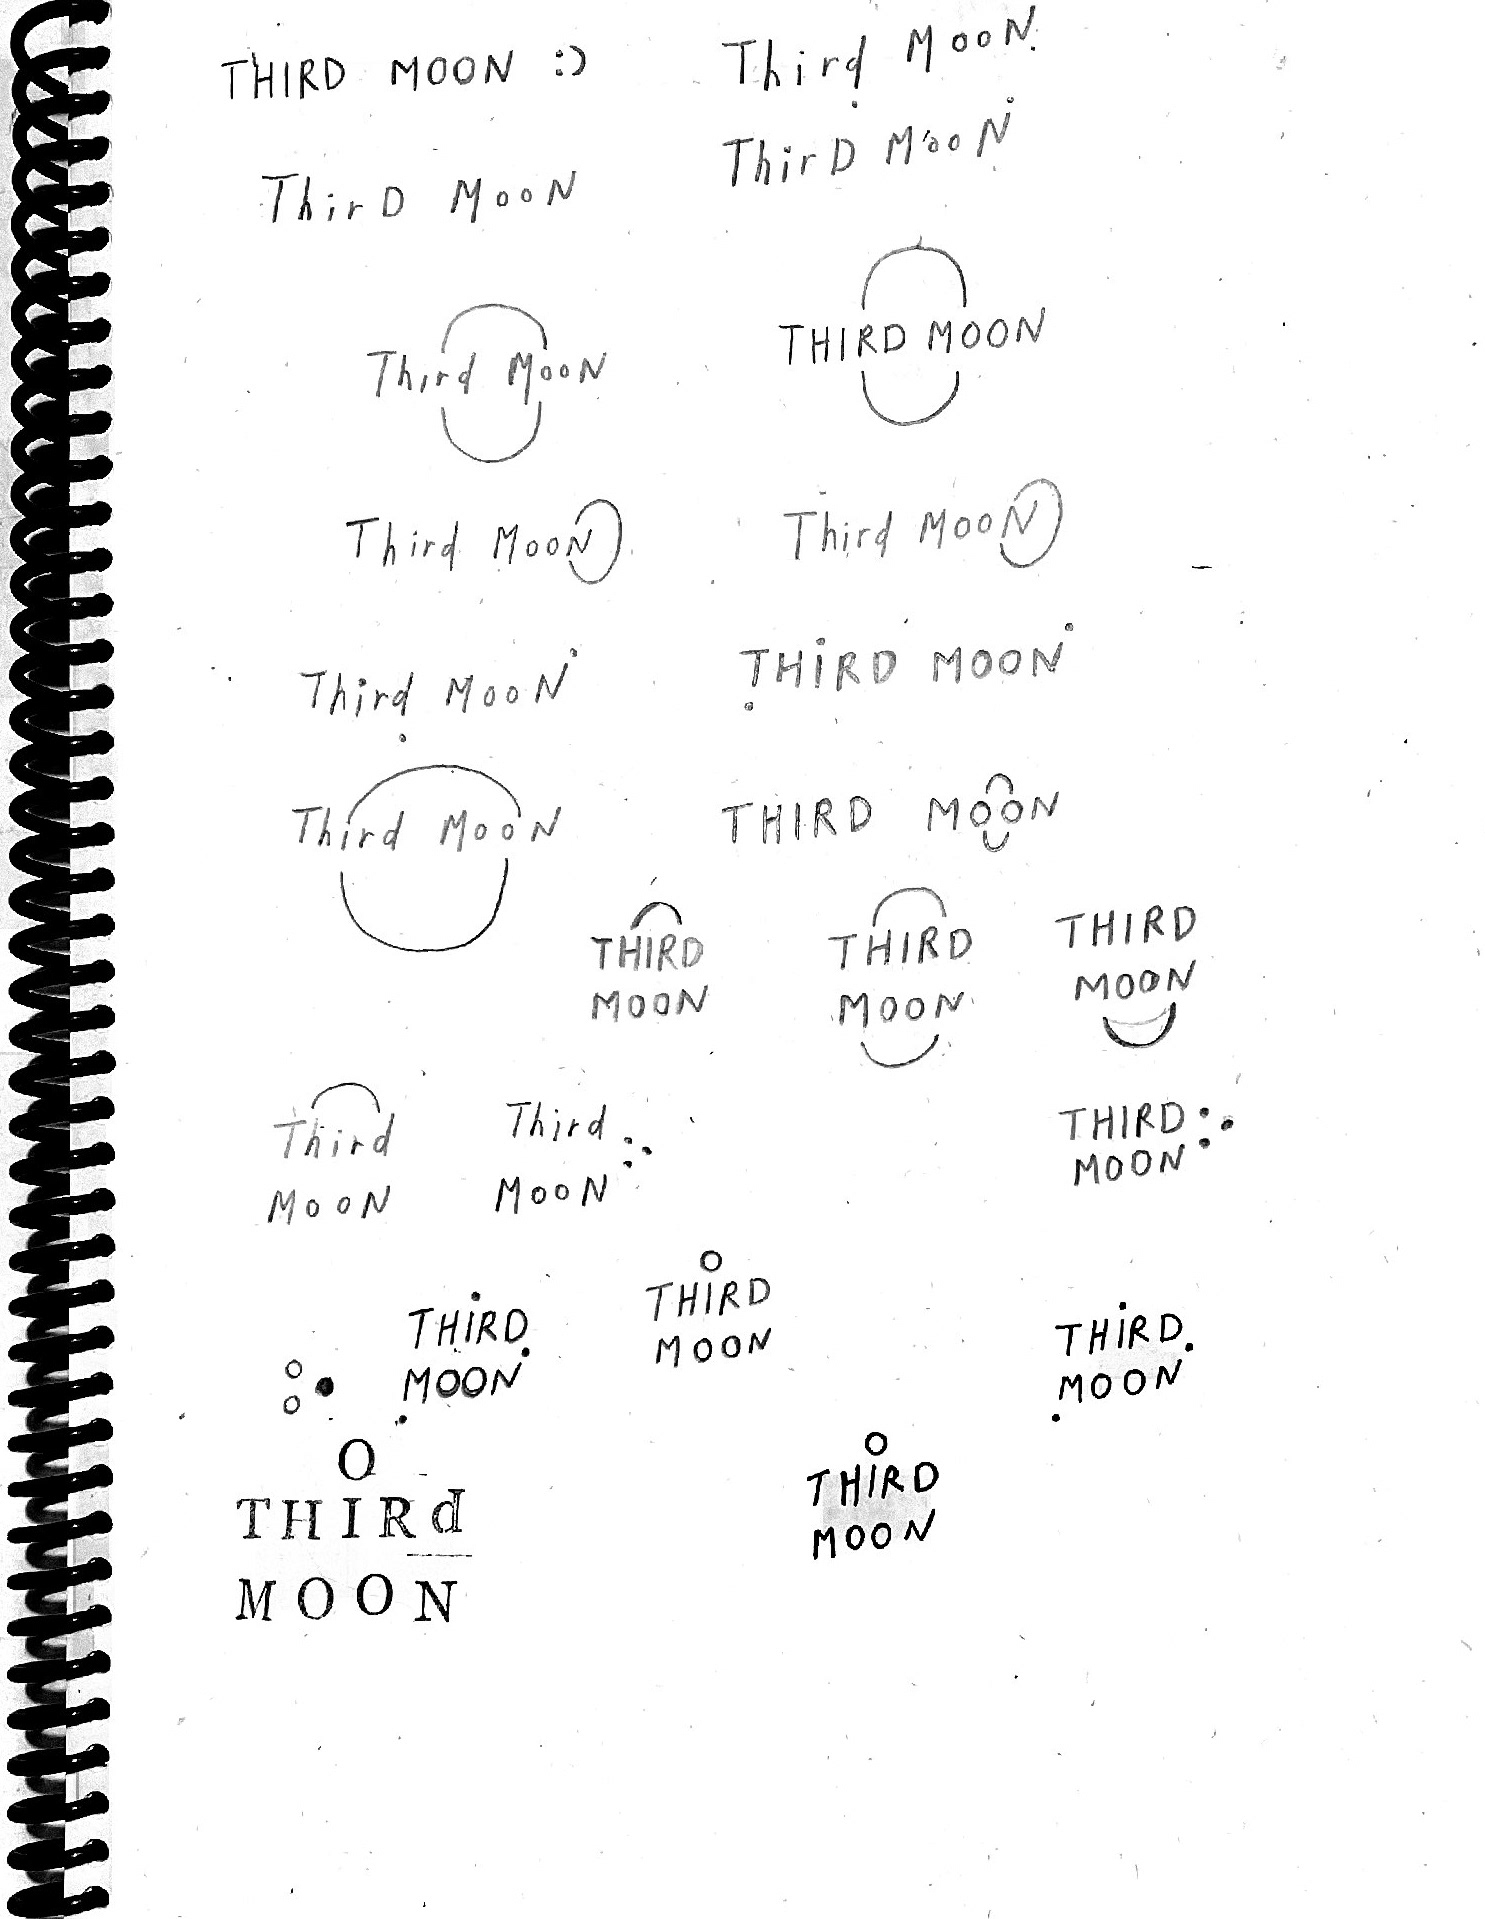 THIRD MOON :)
Third MooN.
ThirD MooN
ThirD MooN
THIRD MOON
Third MooN
Third MooN
Third MooN
THiRD MOON
Third MooN
Third MooN
THIRD MOON
THIRD
MOON
THIRD
MOON
THIRD
MOON
Third
MooN
Third
MooN
THIRD
MOON
THiRD
MOON
O
THIRD
MOON
THiRD
MOON
O
THIRd
MOON
O
THIRD
MOON